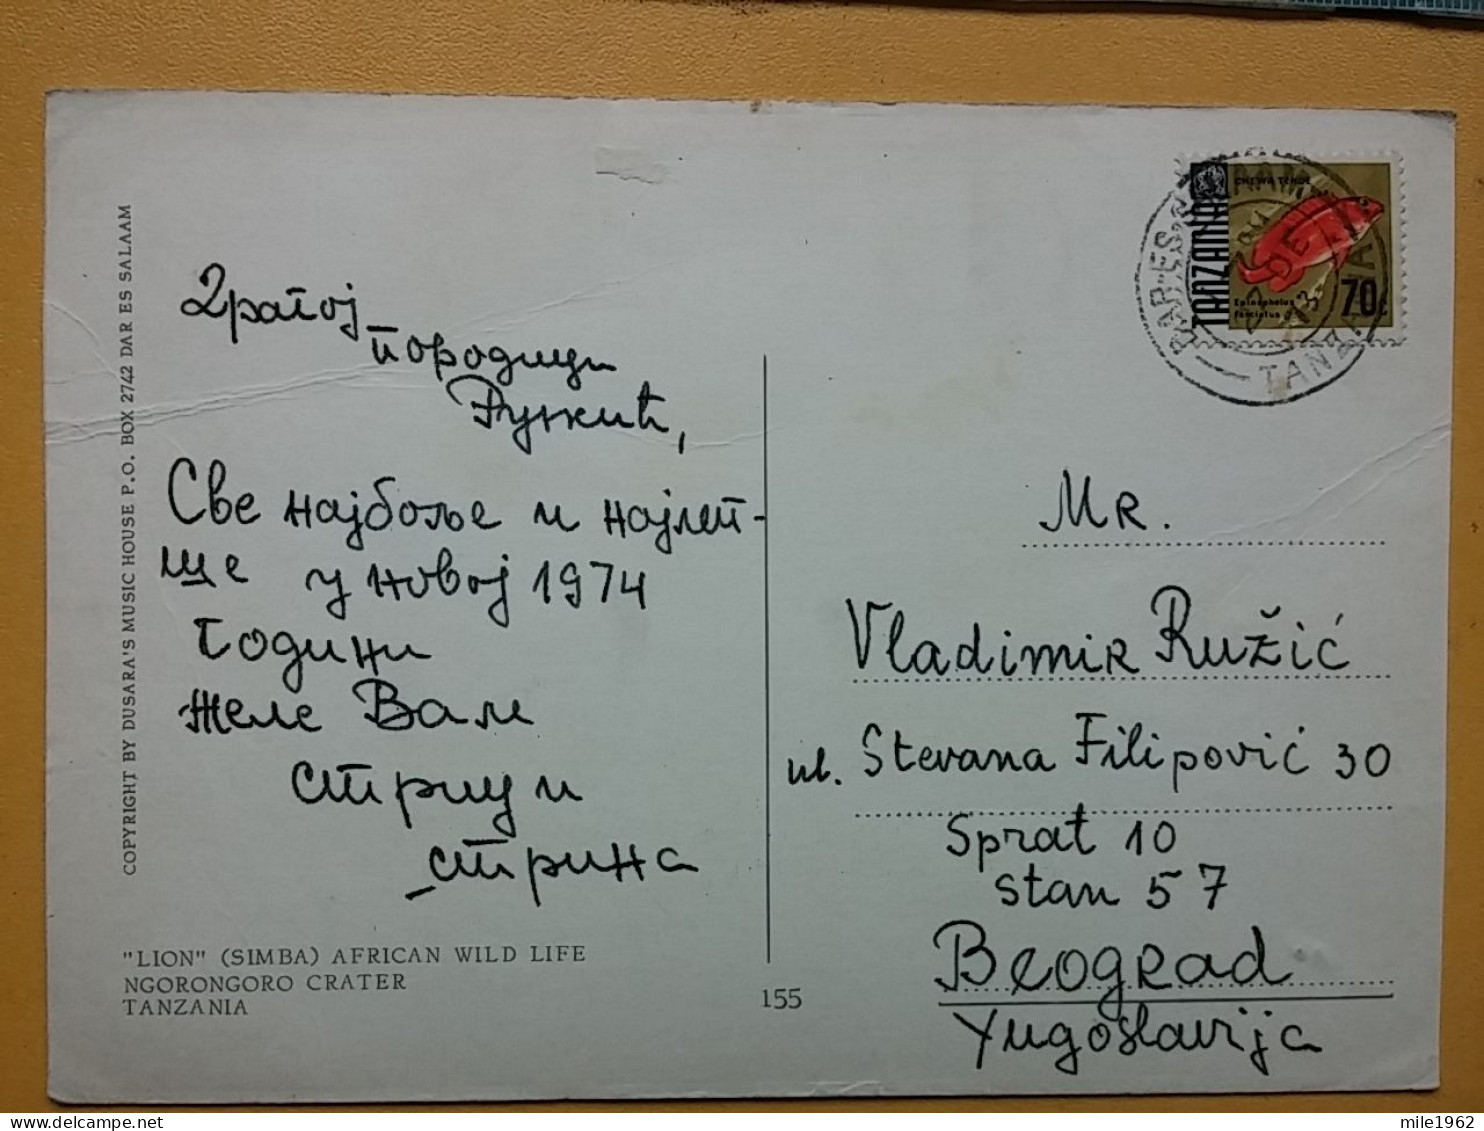 COPYRIGHT BY DUSARA'S MUSIC HOUSE P.O. BOX 2742 DAR ES SALAAM
Драгој
породици
Ружић,
Све најбоље и најлеп-
ше у новој 1974
години
желе Вам
стриц и
стрина
"LION" (SIMBA) AFRICAN WILD LIFE
NGORONGORO CRATER
TANZANIA
155
TANZANIA
CHEWA TENDE
Epinephelus
fasciatus
70c
DAR-ES-SALAAM
TANZANIA
Mr.
Vladimir Ružić
ul. Stevana Filipović 30
Sprat 10
stan 57
Beograd
Yugoslavija
mile1962